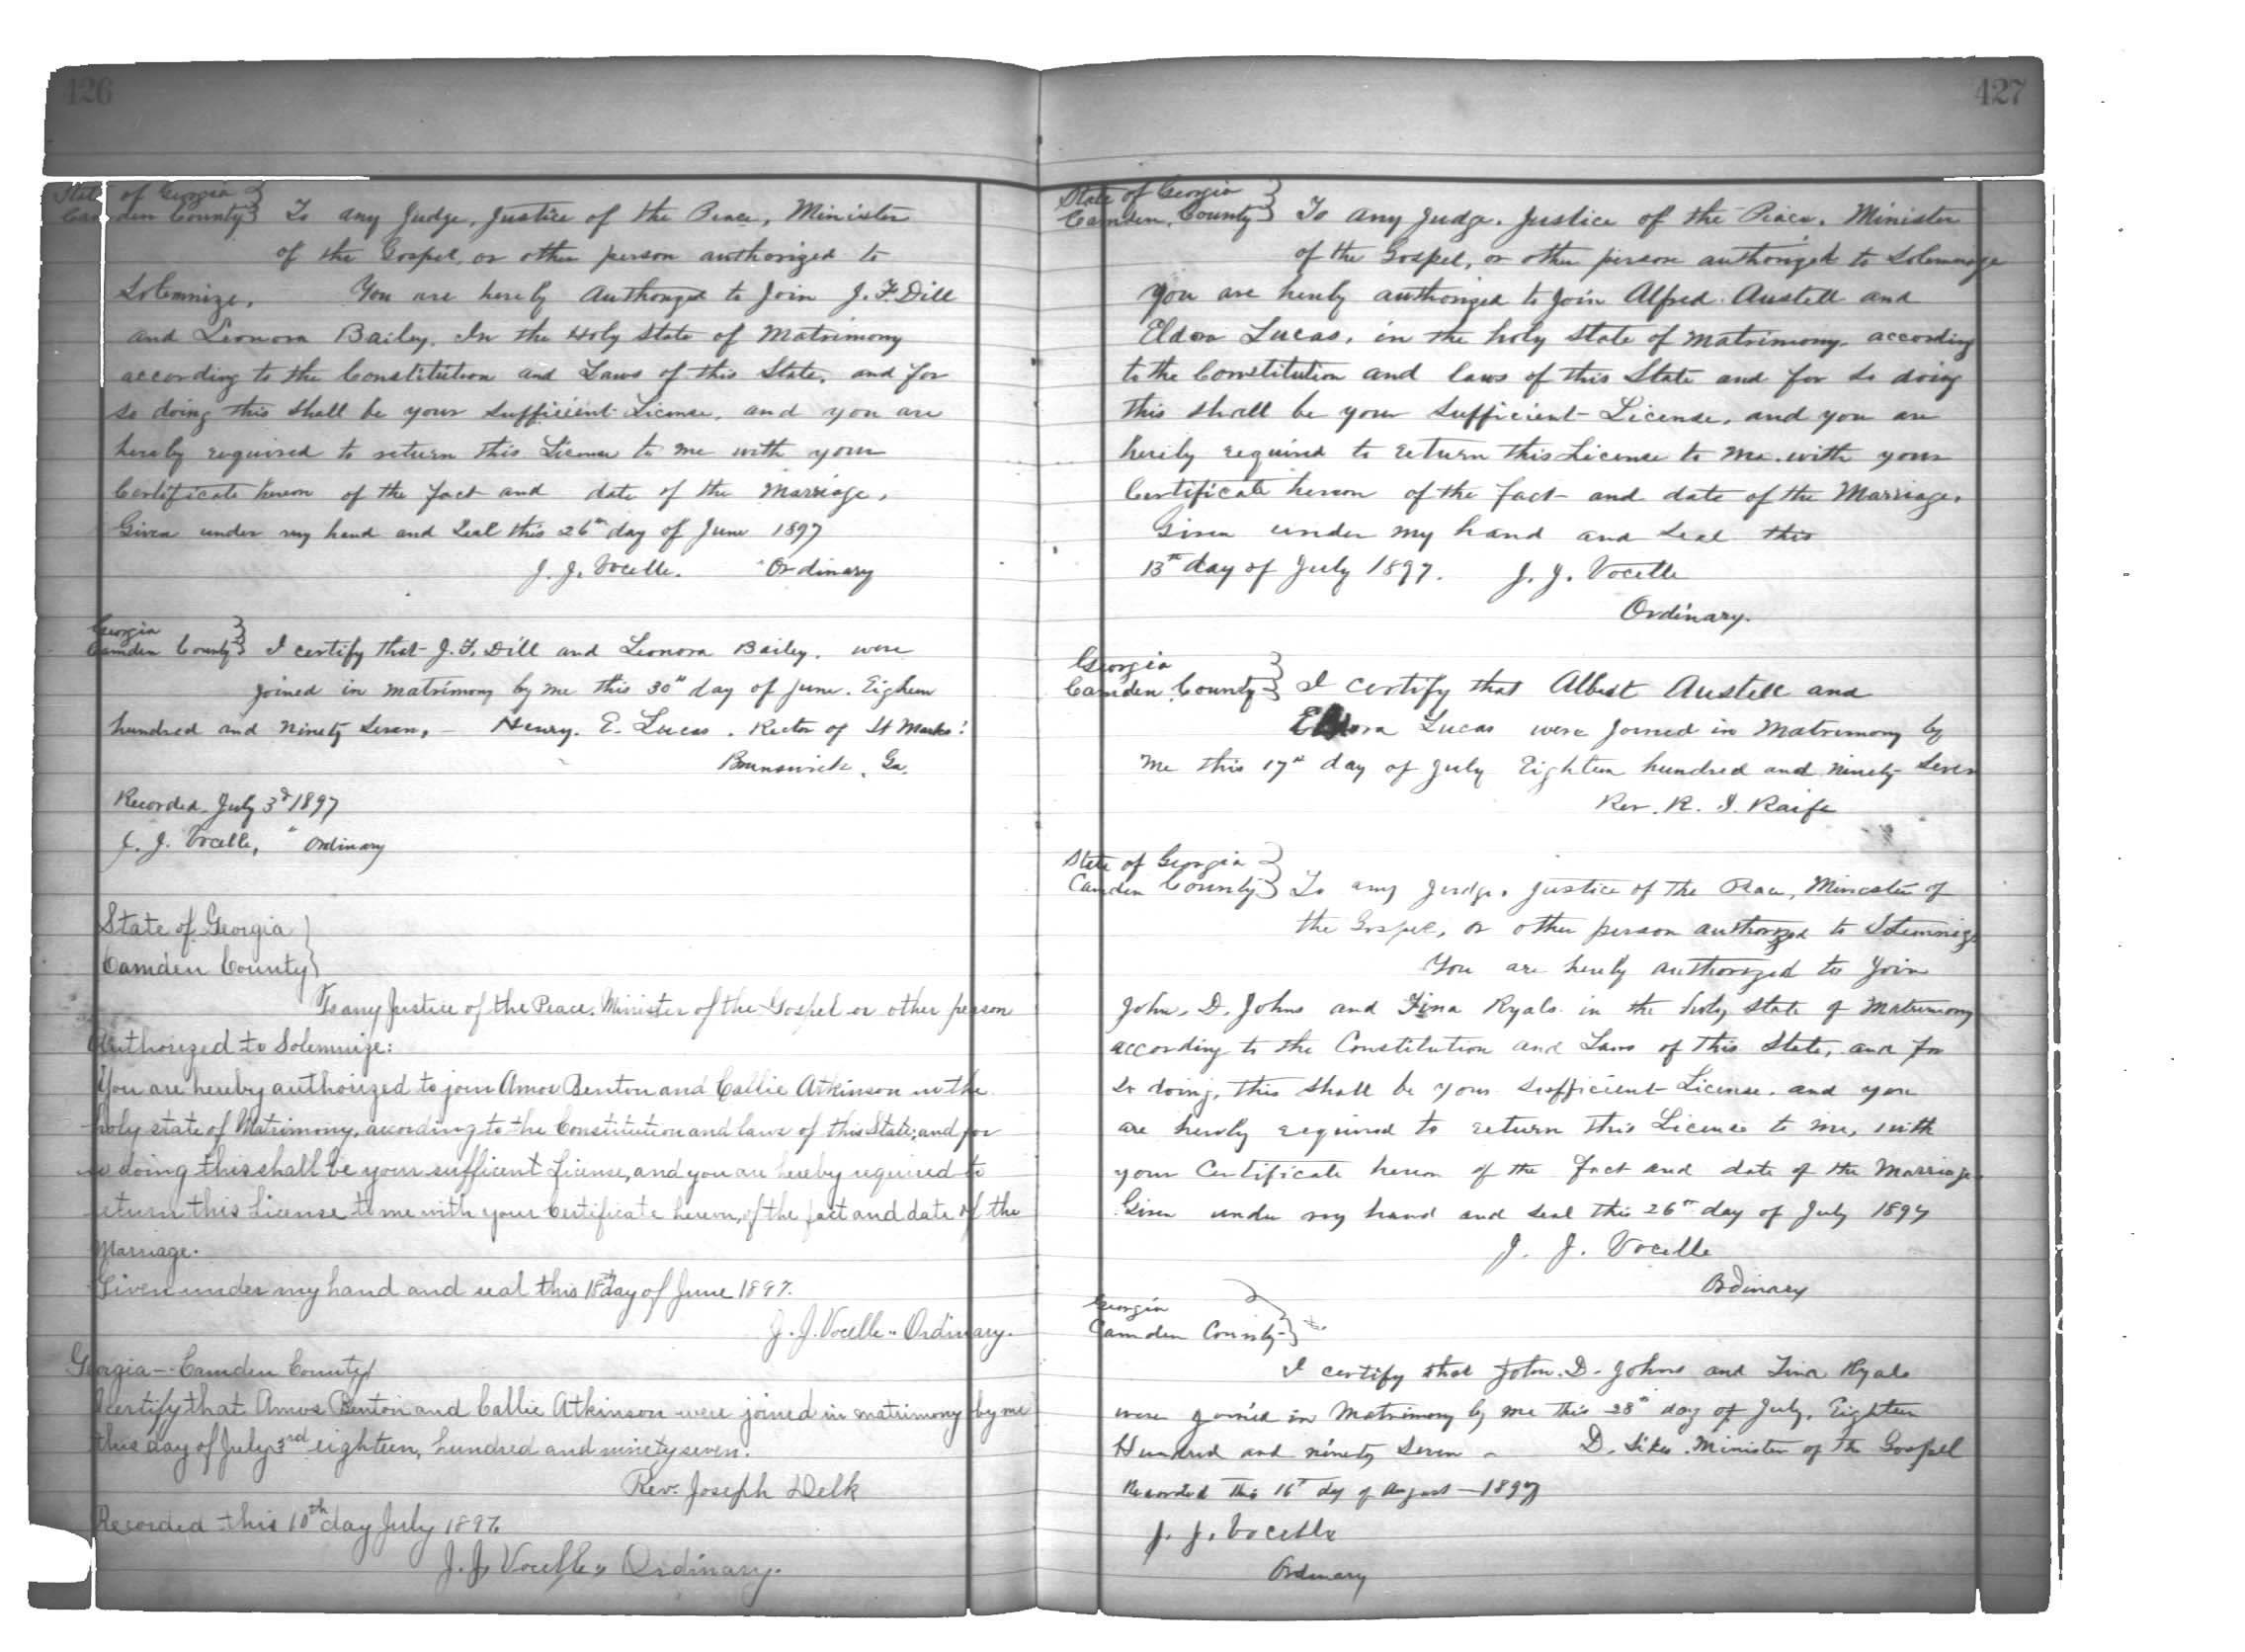 126
State of Georgia
Camden County } To any Judge, Justice of the Peace, Minister
of the Gospel, or other person authorized to
Solemnize. You are hereby authorized to join J. F. Dill
and Leonora Bailey. In the Holy State of Matrimony
according to the Constitution and Laws of this State, and for
so doing this shall be your sufficient License, and you are
hereby required to return this License to me with your
Certificate hereon of the fact and date of the Marriage,
Given under my hand and Seal this 26th day of June 1897
J. J. Vocelle. Ordinary
Georgia
Camden County } I certify that J. F. Dill and Leonora Bailey. were
joined in matrimony by me this 30th day of June. Eighteen
hundred and ninety Seven, - Henry. E. Lucas. Rector of St Marks
Brunswick, Ga.
Recorded July 3d 1897
J. J. Vocelle, " Ordinary
State of Georgia
Camden County }
To any Justice of the Peace, Minister of the Gospel or other person
Authorized to Solemnize:
You are hereby authorized to join Amos Benton and Callie Atkinson in the
holy state of Matrimony, according to the Constitution and laws of this State; and for
so doing this shall be your sufficient License, and you are hereby required to
return this License to me with your Certificate hereon, of the fact and date of the
Marriage.
Given under my hand and seal this 18th day of June 1897.
J. J. Vocelle " Ordinary.
Georgia - Camden County
I certify that Amos Benton and Callie Atkinson were joined in matrimony by me
this day of July 3rd eighteen, hundred and ninety seven.
Rev. Joseph Delk
Recorded this 10th day July 1897.
J. J. Vocelle " Ordinary.
427
State of Georgia
Camden. County } To any Judge. Justice of the Peace. Minister
of the Gospel, or other person authorized to Solemnize
You are hereby authorized to join Alfred Austell and
Eldora Lucas, in the holy state of Matrimony, according
to the Constitution and laws of this State and for so doing
this shall be your sufficient License, and you are
hereby required to return this License to me. with your
Certificate hereon of the fact and date of the Marriage.
Given under my hand and seal this
13th day of July 1897. J. J. Vocelle
Ordinary.
Georgia
Camden. County } I certify that Albert Austell and
Eldora Lucas were joined in Matrimony by
me this 17th day of July Eighteen hundred and ninety Seven
Rev. R. I. Raife
State of Georgia
Camden County } To any Judge, Justice of the Peace, Minister of
the Gospel, or other person authorized to Solemnize
You are hereby authorized to join
John. D. Johns and Tina Ryals in the holy State of Matrimony
according to the Constitution and Laws of this State, and for
so doing, this shall be your sufficient License. and you
are hereby required to return this License to me, with
your Certificate hereon of the fact and date of the Marriage.
Given under my hand and seal this 26th day of July 1897
J. J. Vocelle
Ordinary
Georgia
Camden County }
I certify that John. D. Johns and Tina Ryals
were joined in Matrimony by me this 28th day of July, Eighteen
Hundred and ninety Seven - D. Sikes. Minister of the Gospel
Recorded this 16th day of August - 1897
J. J. Vocelle
Ordinary